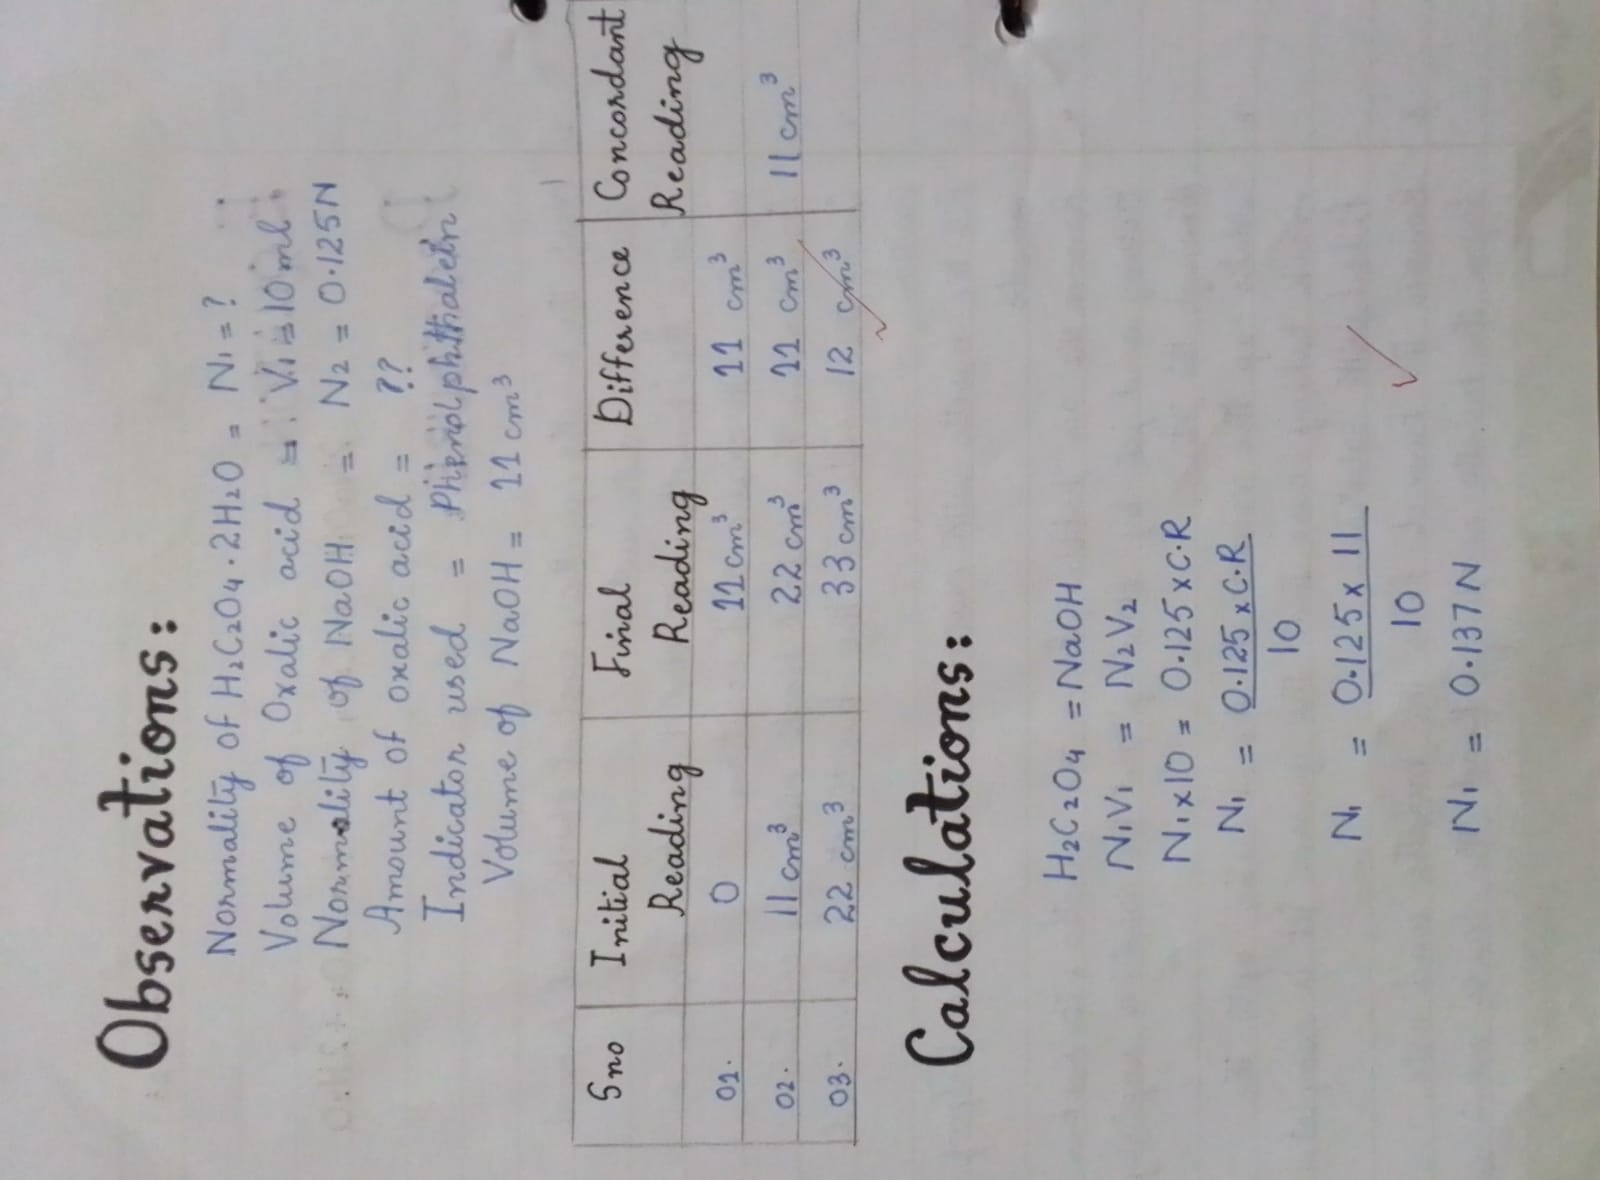 Observations:
Normality of H₂C₂O₄·2H₂O = N₁ = ?
Volume of Oxalic acid = V₁ = 10 ml
Normality of NaOH = N₂ = 0.125N
Amount of oxalic acid = ??
Indicator used = Phenolphthalein
Volume of NaOH = 11 cm³
Sno Initial Reading Final Reading Difference Concordant Reading
01. 0 11 cm³ 11 cm³
02. 11 cm³ 22 cm³ 11 cm³ 11 cm³
03. 22 cm³ 33 cm³ 12 cm³
Calculations:
H₂C₂O₄ = NaOH
N₁V₁ = N₂V₂
N₁x10 = 0.125 x C.R
N₁ = 0.125 x C.R
10
N₁ = 0.125 x 11
10
N₁ = 0.137 N